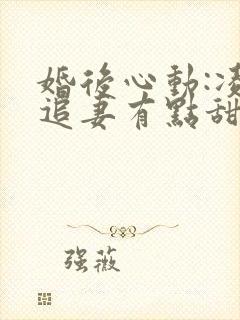 婚後心動:凌
追妻有點甜
强薇